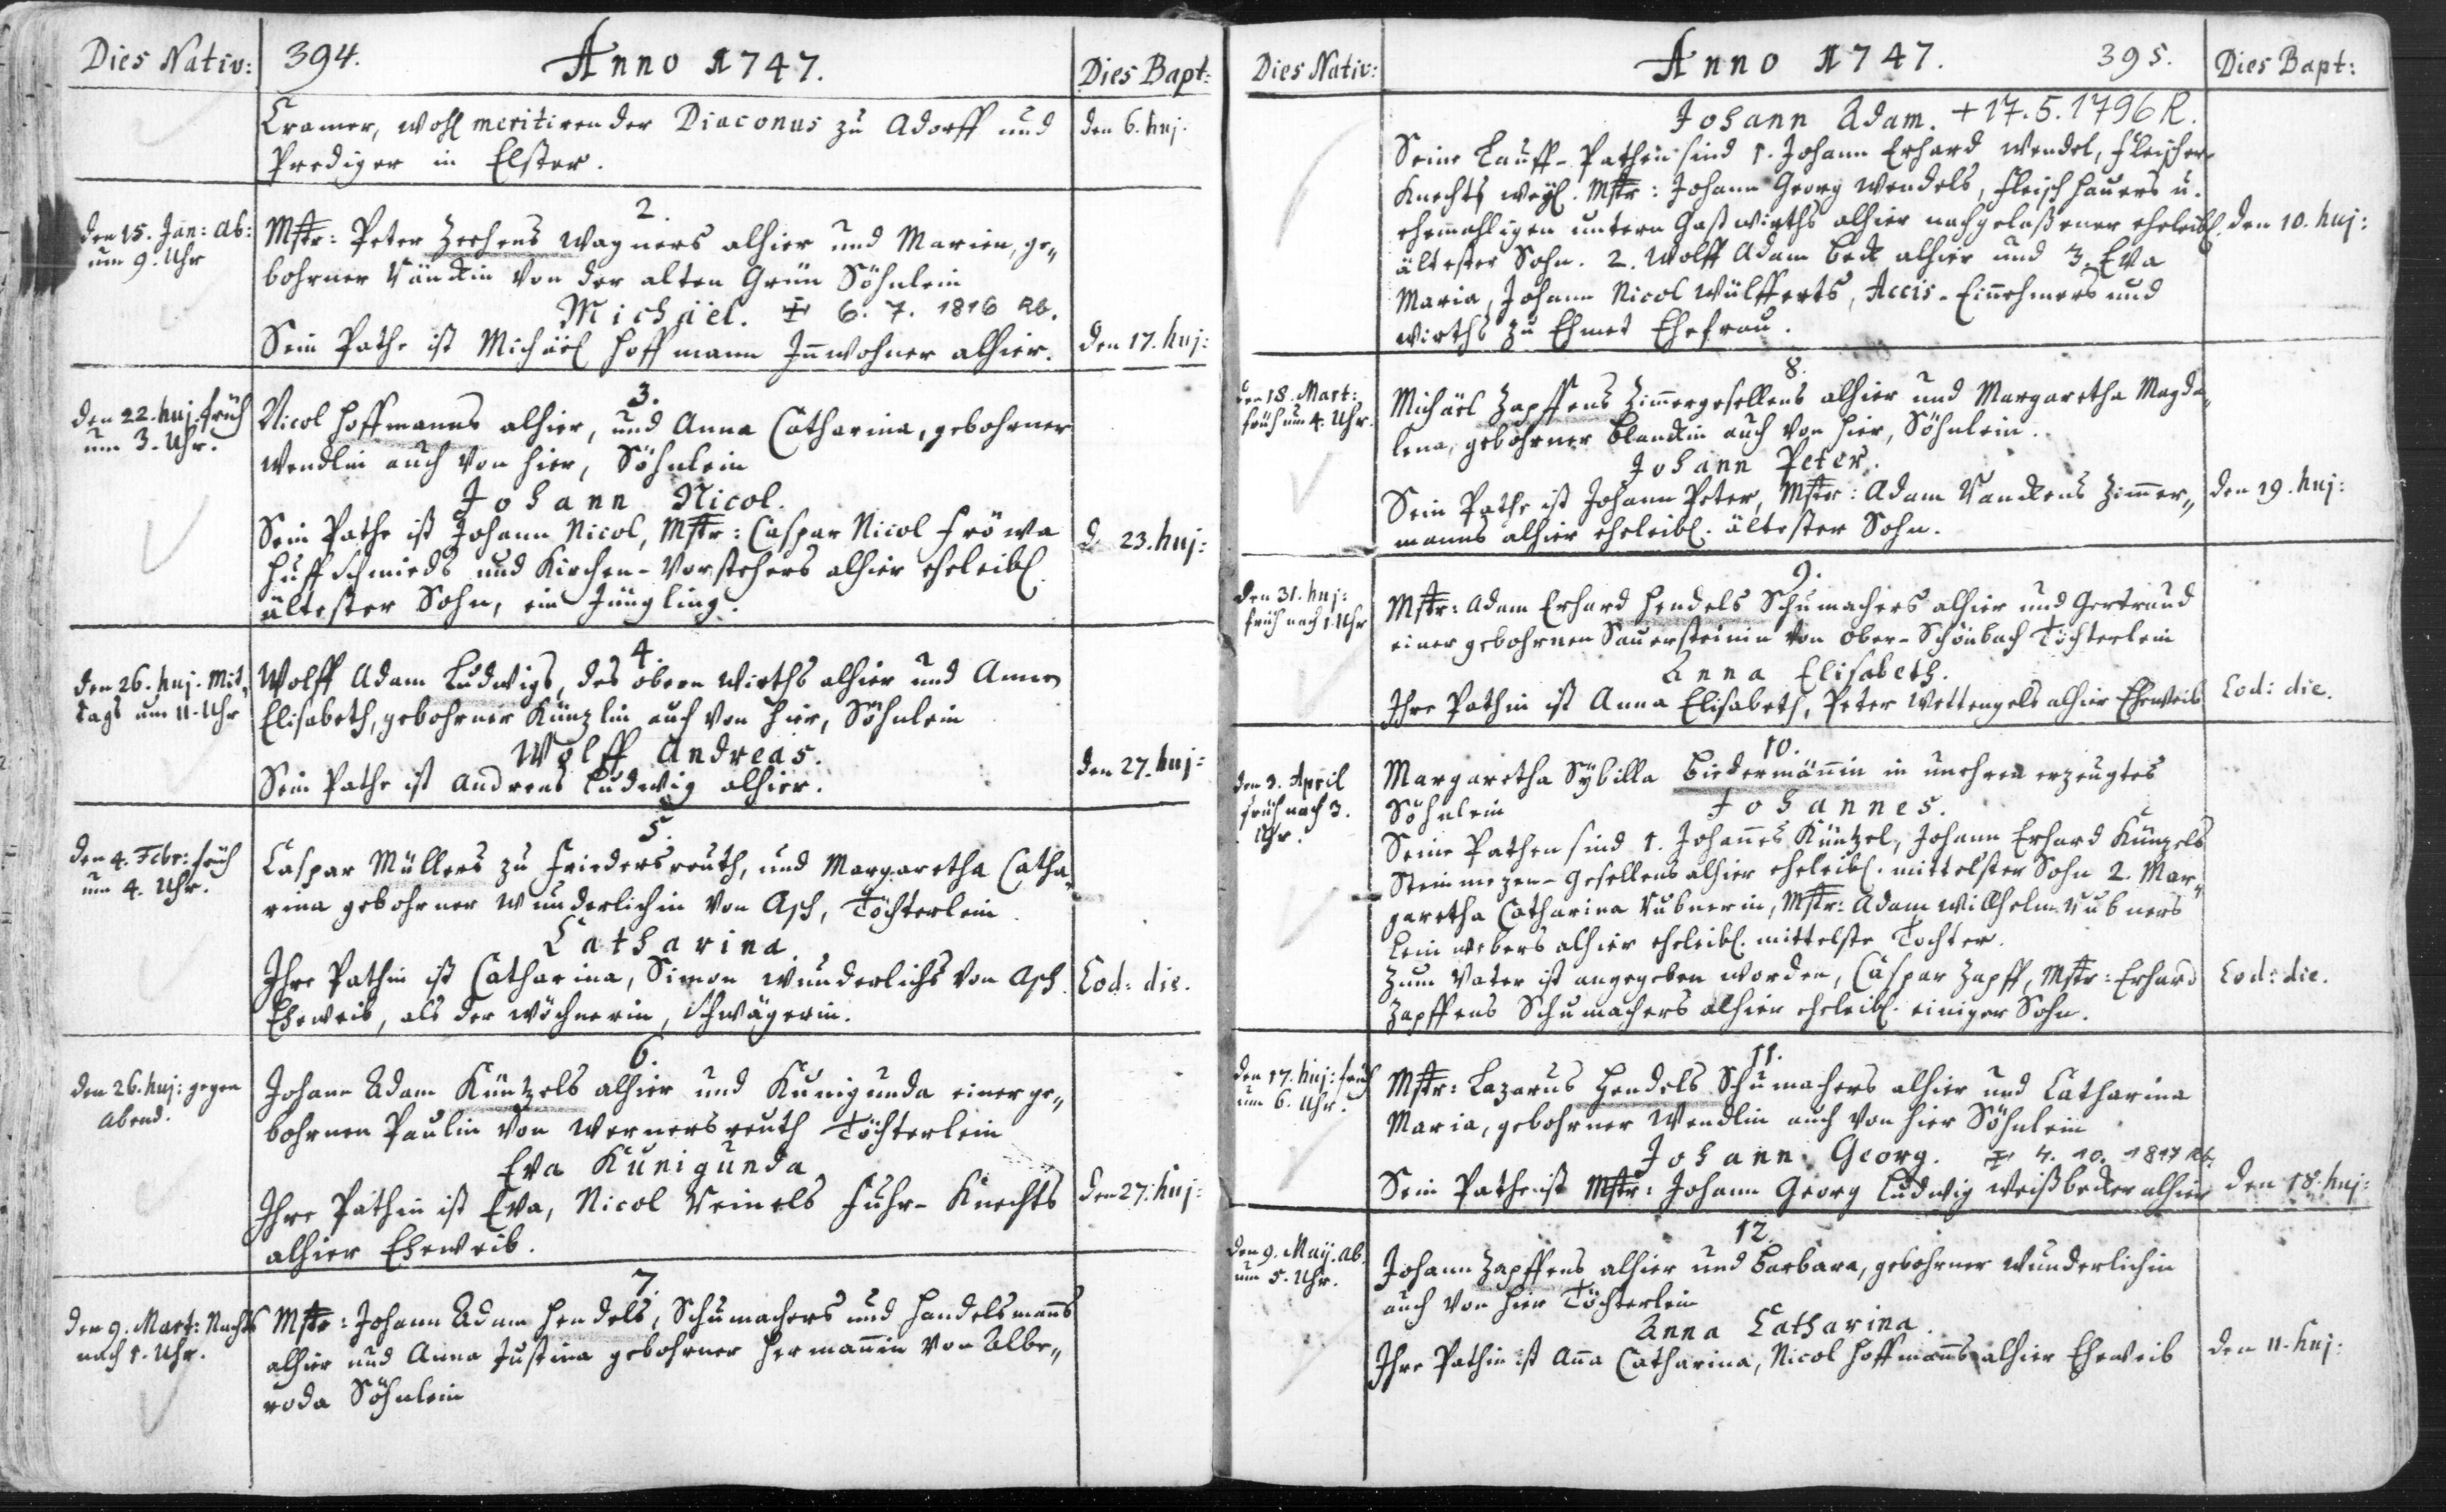 Dies Nativ: 394. Anno 1747. Dies Bapt:
Cramer, wohl meritirender Diaconus zu Adorff und
den 6. huj.
Prediger in Elster.
2.
den 15. Jan: Ab:
um 9. Uhr
Mstr: Peter Zeehens Wagners alhier und Marien, ge„
bohrner Künkin von der alten Grün Söhnlein
Michael. 6. 7. 1816 Rb.
Sein Pathe ist Michäel Hoffmann Inwohner alhier.
den 17. huj:
3.
den 22. huj. früh
um 3. Uhr.
Nicol Hoffmanns alhier, und Anna Catharina, gebohrner
Wendlin auch von hier, Söhnlein
Johann Nicol.
Sein Pathe ist Johann Nicol, Mstr: Caspar Nicol Fröwa
d. 23. huj:
Huffschmieds und Kirchen-Vorstehers alhier eheleibl.
ältester Sohn, ein Jüngling.
4.
den 26. huj. Mit„
tags um 11. Uhr
Wolff Adam Ludwigs, des obern Wirths alhier und Annen
Elisabeth, gebohrner Künzlin auch von hier, Söhnlein
Wolff Andreas.
Sein Pathe ist Andreas Ludwig alhier.
den 27. huj:
5.
den 4. Febr: früh
um 4. Uhr.
Caspar Müllers zu Friedersreuth, und Margaretha Catha„
rina gebohrner Wunderlichin von Asch, Töchterlein
Catharina.
Ihre Pathin ist Catharina, Simon Wunderlichs von Asch
Eod: die.
Eheweib, als der Wöchnerin, Schwägerin.
6.
den 26. huj: gegen
Abend.
Johann Adam Küntzels alhier und Kunigunda einer ge„
bohrnen Paulin von Wernersreuth Töchterlein
Eva Kunigunda
Ihre Pathin ist Eva, Nicol Reinels Fuhr-Knechts
den 27. huj:
alhier Eheweib.
7.
den 9. Mart: Nachts
nach 1. Uhr.
Mstr: Johann Adam Hendels, Schumachers und Handelsmanns
alhier und Anna Justina gebohrner Hermannin von Albe„
roda Söhnlein
Dies Nativ: Anno 1747. 395. Dies Bapt:
Johann Adam. + 17. 5. 1796 R.
Seine Tauff-Pathen sind 1. Johann Erhard Wendel, Fleischer
Knechts weyl. Mstr: Johann Georg Wendels, Fleischhauers u.
ehemahligen untern Gastwirths alhier nachgelaßener eheleibl.
den 10. huj:
ältester Sohn. 2. Wolff Adam Beck alhier und 3. Eva
Maria, Johann Nicol Wülfferts, Accis-Einnehmers und
Wirths zu Ehefrau.
8.
den 18. Mart:
früh um 4. Uhr.
Michäel Zapffens Zimmergesellens alhier und Margaretha Magda„
lena, gebohrner Blankin auch von hier, Söhnlein.
Johann Peter.
Sein Pathe ist Johann Peter, Mstr: Adam Zimmer„
den 19. huj:
manns alhier eheleibl. ältester Sohn.
9.
den 31. huj:
früh nach 1. Uhr
Mstr: Adam Erhard Hendels Schumachers alhier und Gertraud
einer gebohrnen Sauersteinin von Ober-Schönbach Töchterlein
Anna Elisabeth.
Ihre Pathin ist Anna Elisabeth, Peter Wettengels alhier Eheweib
Eod: die.
10.
den 3. April
früh nach 3.
Uhr.
Margaretha Sybilla Biedermännin in unehren erzeugtes
Söhnlein Johannes.
Seine Pathen sind 1. Johannes Küntzel, Johann Erhard Künzels
Steinmezen-Gesellens alhier eheleibl. mittelster Sohn 2. Mar„
garetha Catharina Hubnerin, Mstr: Adam Willhelm Hubners
Leinwebers alhier eheleibl. mittelste Tochter.
Zum Vater ist angegeben worden, Caspar Zapff, Mstr: Erhard
Eod: die.
Zapffens Schumachers alhier eheleibl. einiger Sohn.
11.
den 17. huj: früh
um 6. Uhr.
Mstr: Lazarus Hendels Schumachers alhier und Catharina
Maria, gebohrner Wendlin auch von hier Söhnlein
Johann Georg. 4. 10. 1817 Rb.
Sein Pathe ist Mstr: Johann Georg Ludwig Weißbecker alhier
den 18. huj:
12.
den 9. May. Ab.
um 5. Uhr.
Johann Zapffens alhier und Barbara, gebohrner Wunderlichin
auch von hier Töchterlein
Anna Catharina.
Ihre Pathin ist Anna Catharina, Nicol Hoffmanns alhier Eheweib
den 11. huj: